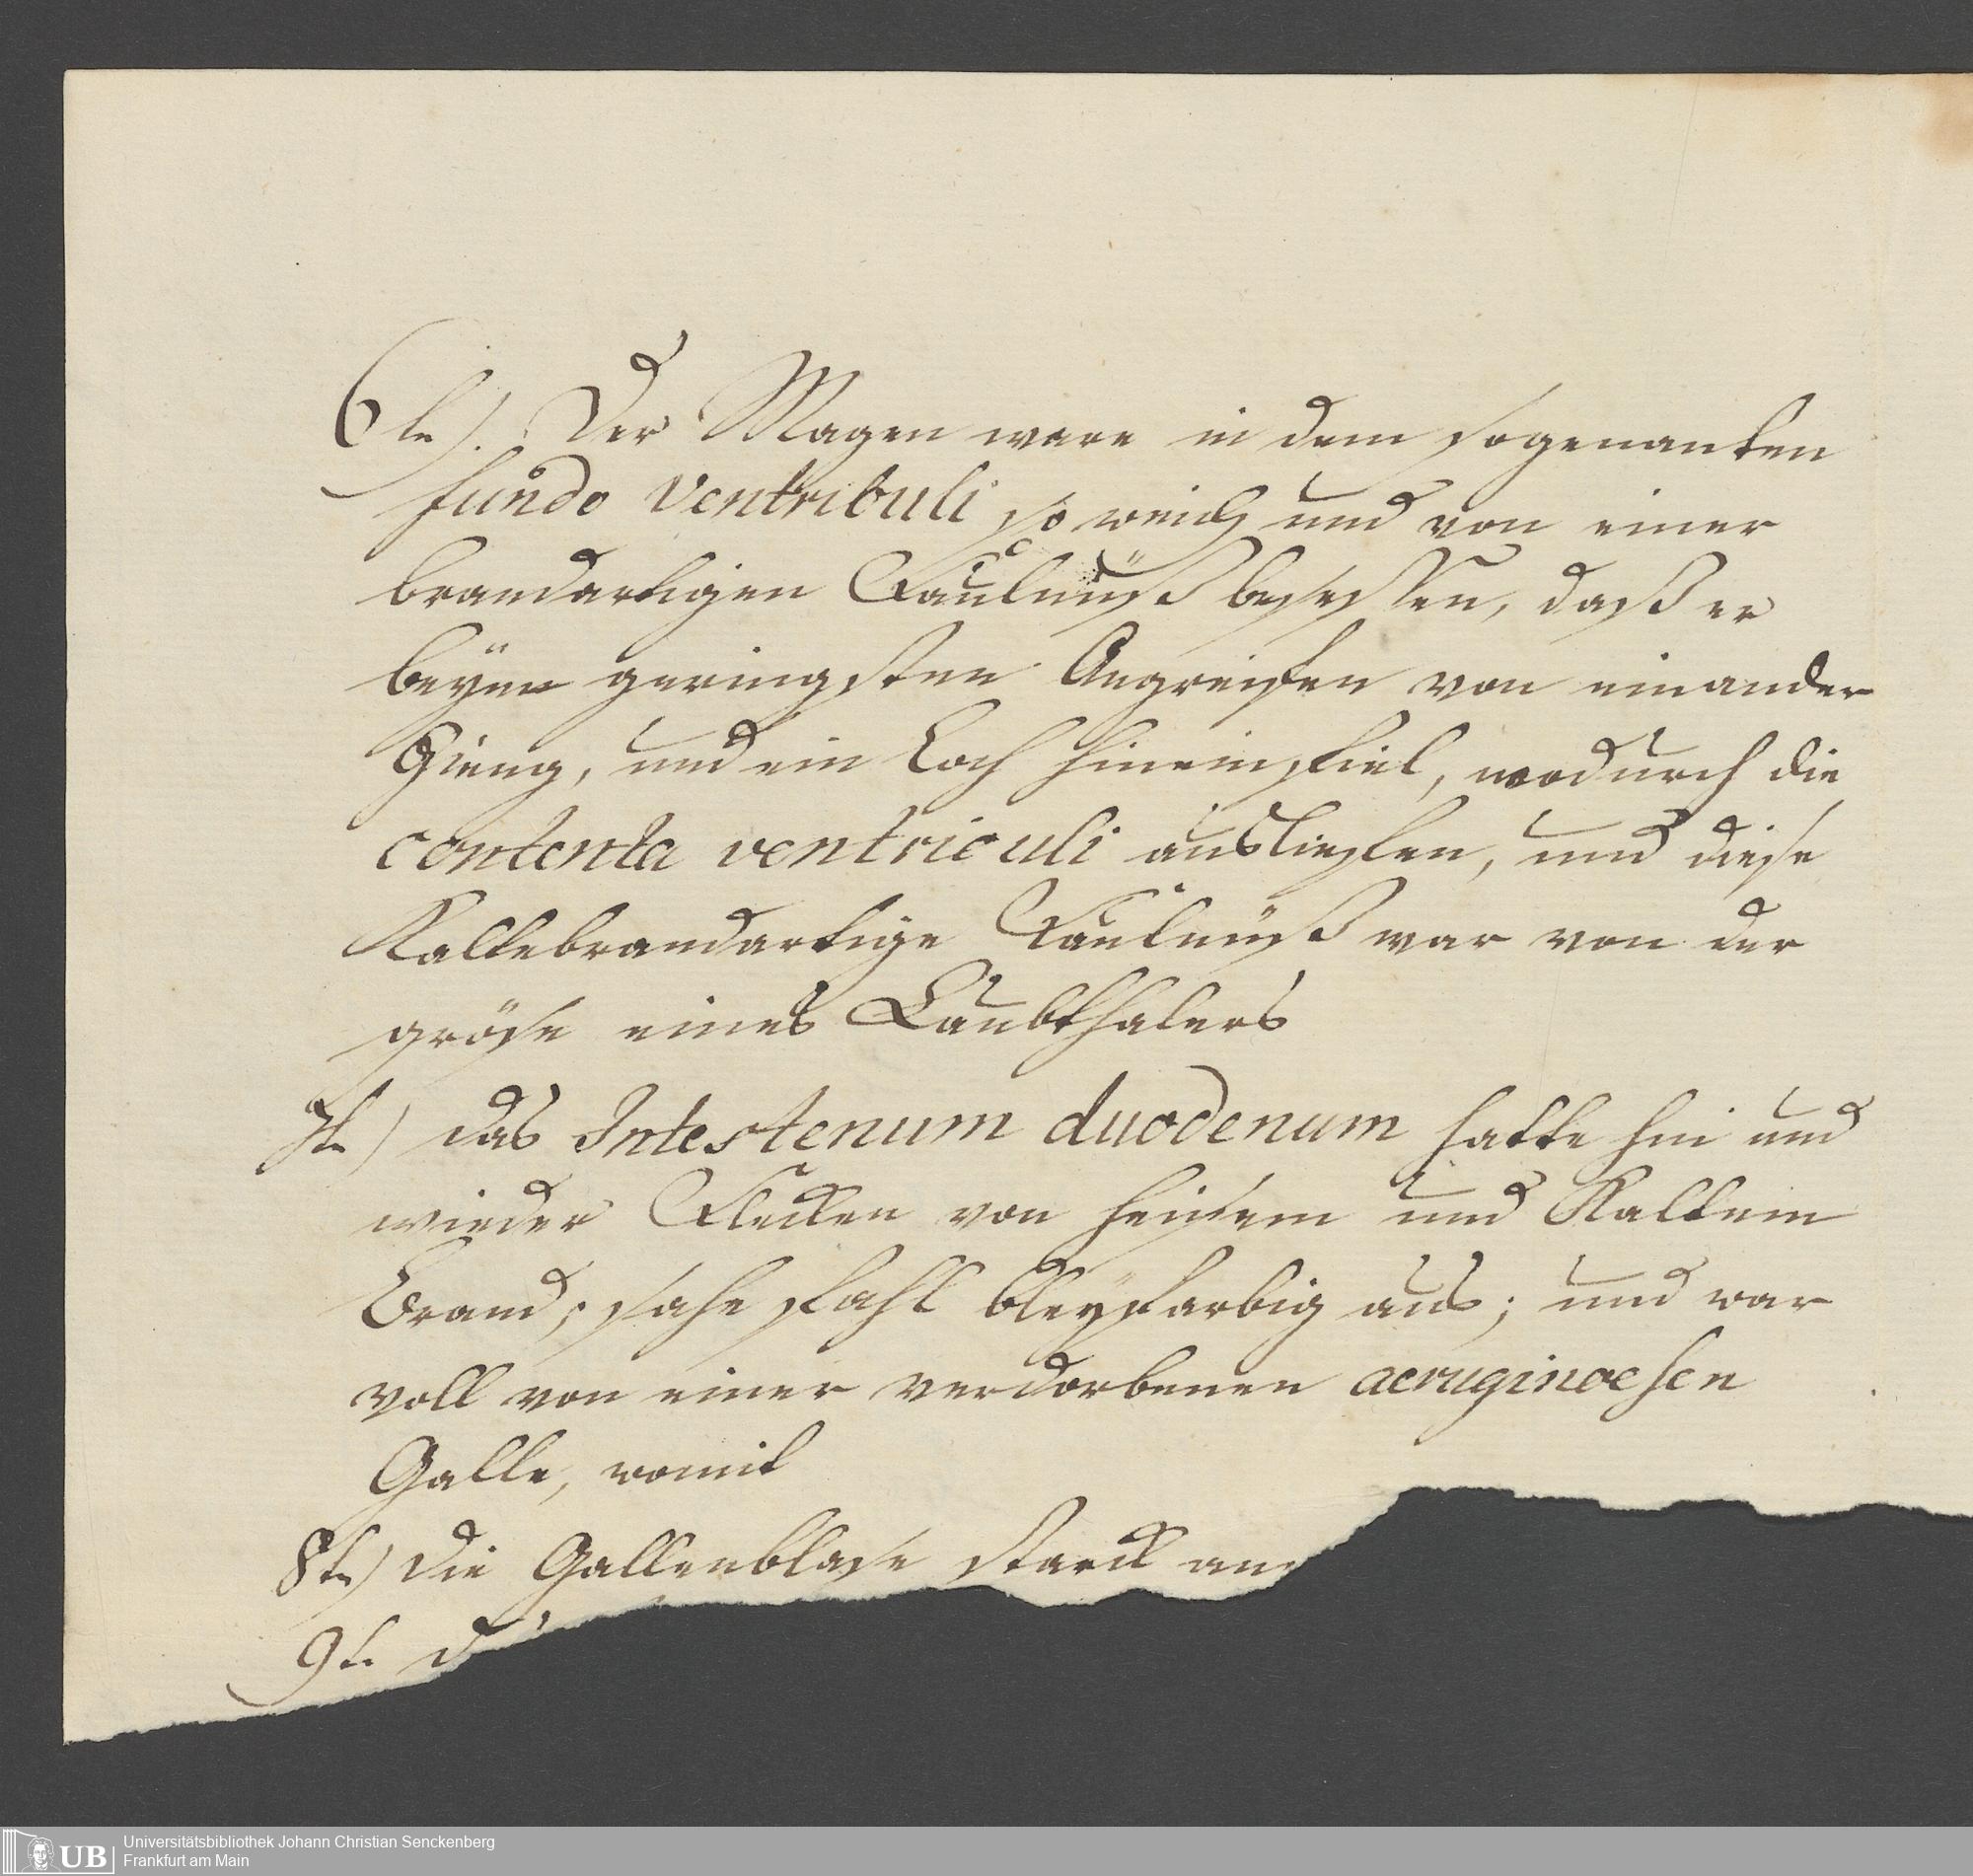 6te). Der Magen ware in dem sogenanten
fundo Ventribuli so weich und von einer
brandartigen Faulnüß besessen, daß er
beym geringsten Angreifen von einander
Gieng, und ein Loch hineinfiel, wodurch die
contenta ventriculi ausliefen, und diese
Kaltebrandartige Faulnüß war von der
gröse eines Laubthalers
7te) das Intestenum duodenum hatte hin und
wieder Flecken von heisem und Kaltem
Brand; sahe fahl bleyfarbig aus; und war
voll von einer verdorbenen aeruginoesen
Galle, womit
8te) die Gallenblase starck
9te
Universitätsbibliothek Johann Christian Senckenberg
Frankfurt am Main
UB